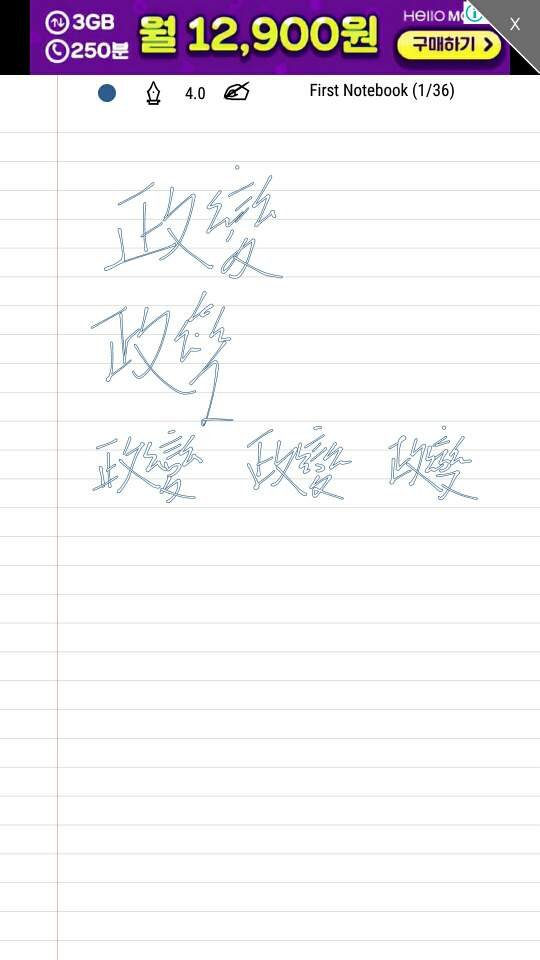 3GB
250분
월 12,900원
Hello M
구매하기 >
X
4.0
First Notebook (1/36)
政變
政變
政變 政變 政變